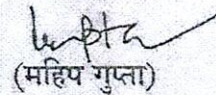 (महिप गुप्ता)